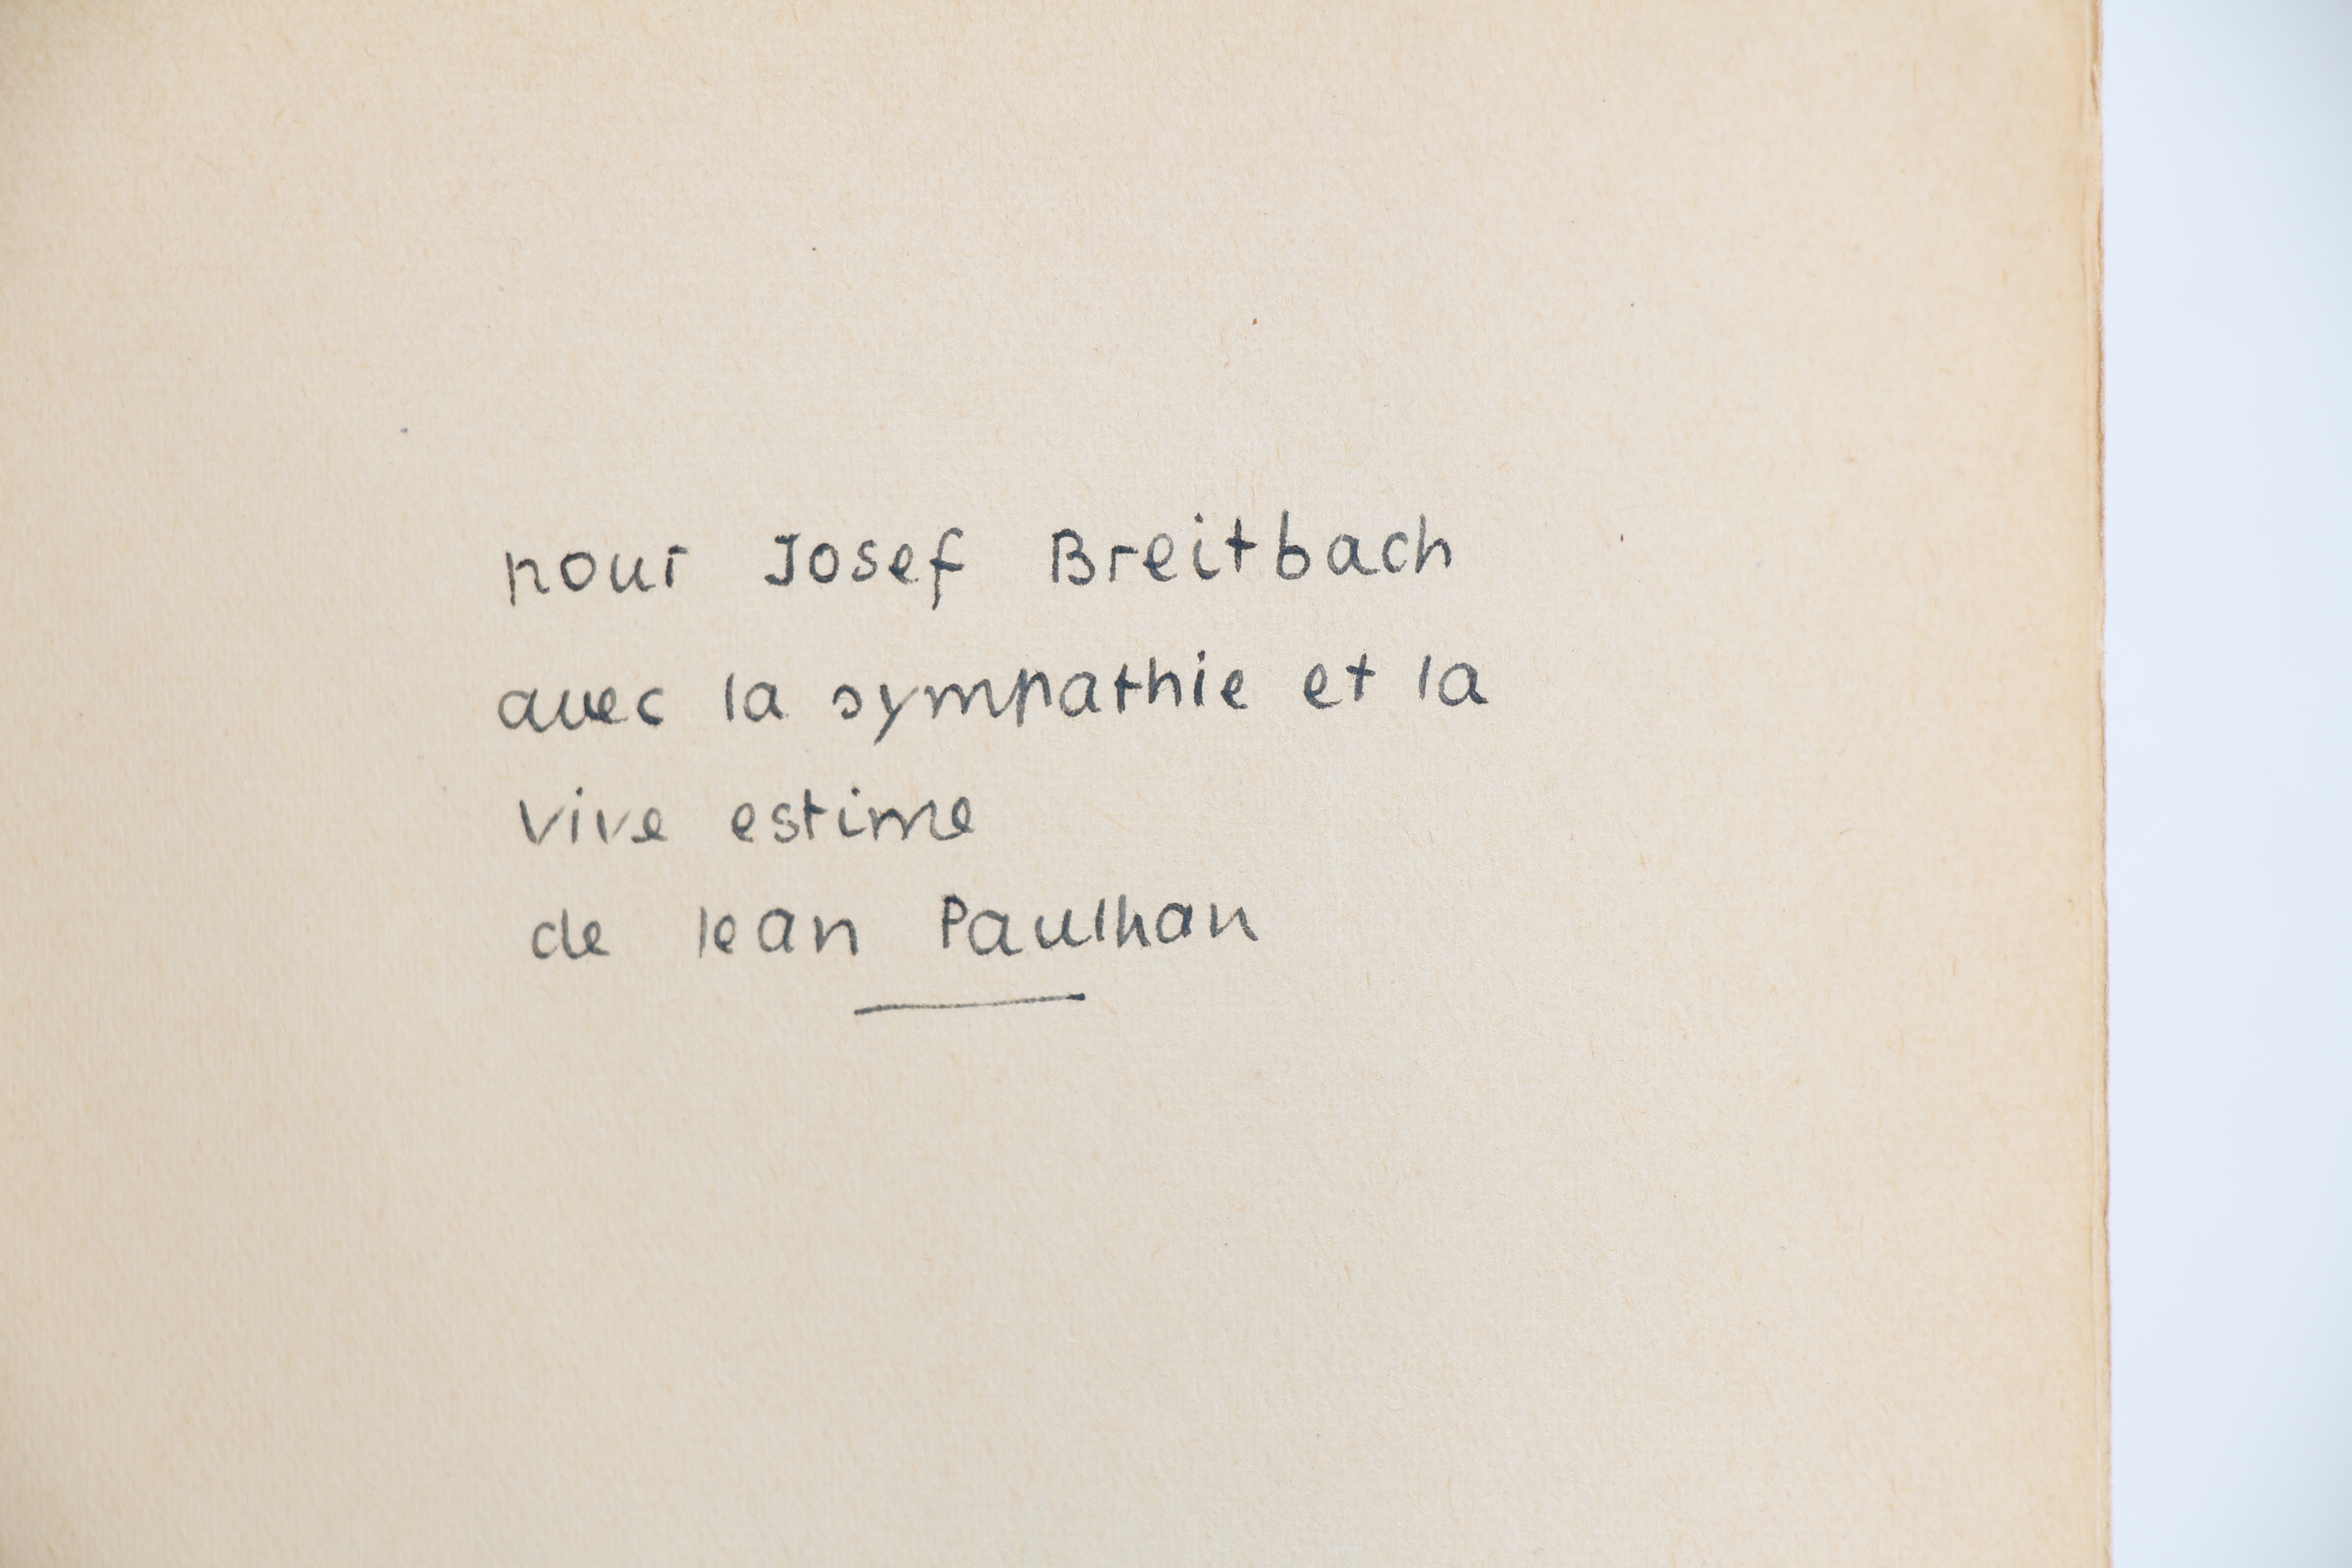 pour Josef Breitbach
avec la sympathie et la
vive estime
de Jean Paulhan